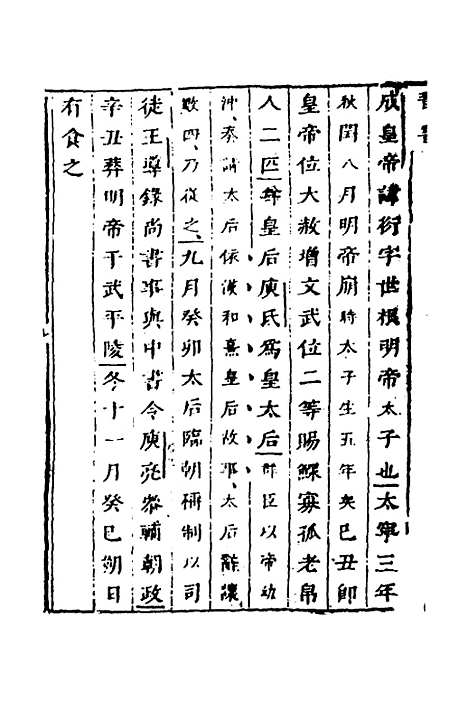 晉書
成皇帝諱衍字世根明帝太子也太寧三年
秋閏八月明帝崩時太子生五年矣己丑卽
皇帝位大赦增文武位二等賜鰥寡孤老帛
人二匹尊皇后庾氏爲皇太后群臣以帝幼
沖奏請太后依漢和熹皇后故事太后辭讓
數四乃從之九月癸卯太后臨朝稱制以司
徒王導錄尚書事與中書令庾亮參輔朝政
辛丑葬明帝于武平陵冬十一月癸巳朔日
有食之